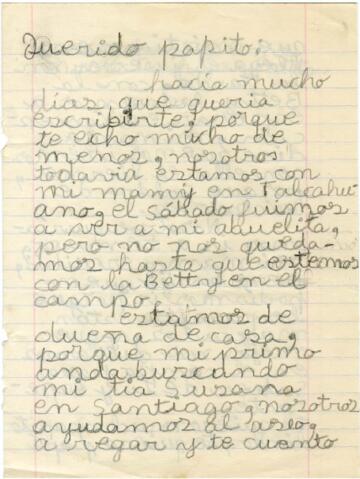 Querido papito:
hacia mucho
dias, que queria
escribirte, porque
te echo mucho de
menos, nosotros
todavia estamos con
mi mamy en Talcahu-
ano, el sábado fuimos
a ver a mi abuelita,
pero no nos queda-
mos hasta que estemos
con la Betty en el
campo.
estamos de
duena de casa,
porque mi primo
anda buscando
mi tia Susana
en Santiago, nosotros
ayudamos al aseo,
a regar y te cuento